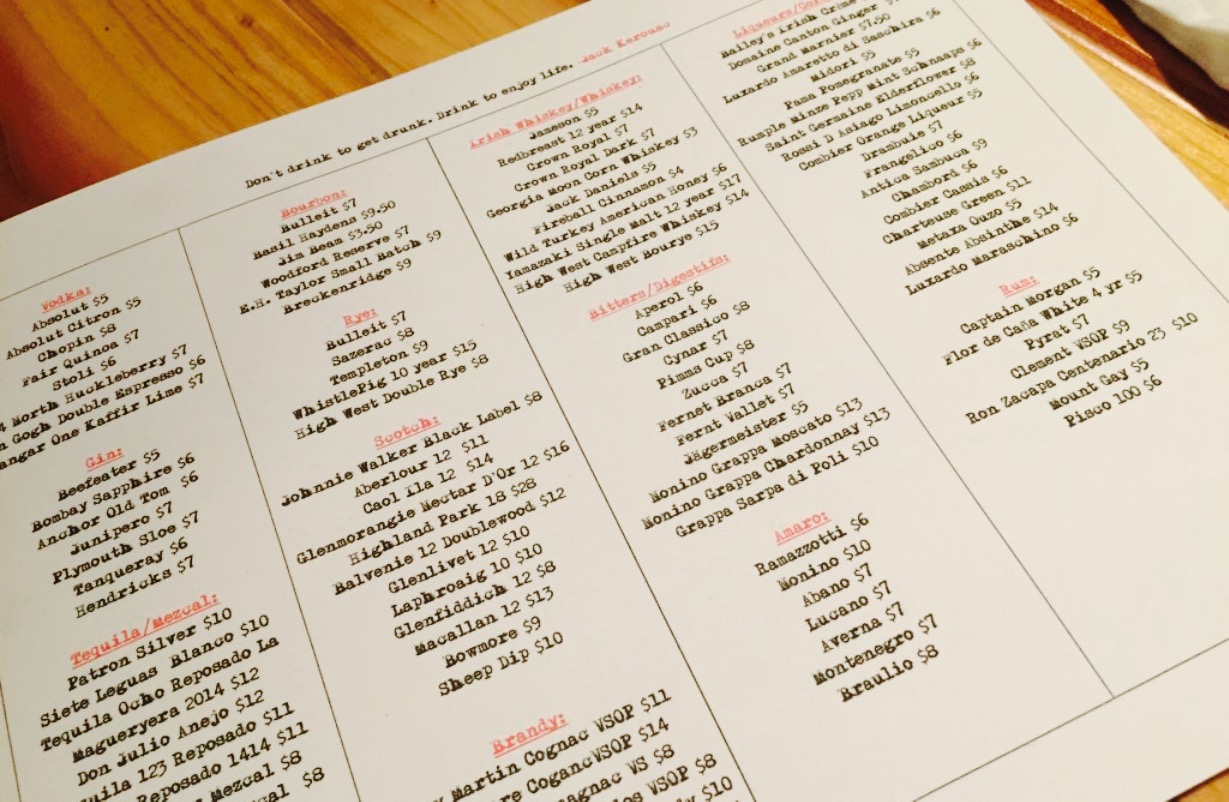 Don't drink to get drunk. Drink to enjoy life. Jack Kerouac
Vodka:
Absolut $5
Absolut Citron $5
Chopin $8
Fair Quinoa $7
Stoli $6
North Huckleberry $7
Gogh Double Espresso $6
One Kaffir Lime $7
Gin:
Beefeater $5
Bombay Sapphire $6
Anchor Old Tom $6
Junipero $7
Plymouth Sloe $7
Tanqueray $6
Hendricks $7
Tequila/Mezcal:
Patron Silver $10
Siete Leguas Blanco $10
Tequila Ocho Reposado La
Magueryera 2014 $12
Don Julio Anejo $12
123 Reposado $11
Reposado 1414 $11
Mezcal $8
$8
Bourbon:
Bulleit $7
Basil Haydens $9.50
Jim Beam $3.50
Woodford Reserve $7
E.H. Taylor Small Batch $9
Breckenridge $9
Rye:
Bulleit $7
Sazerac $8
Templeton $9
WhistlePig 10 year $15
High West Double Rye $8
Scotch:
Johnnie Walker Black Label $8
Aberlour 12 $11
Caol Ila 12 $14
Glenmorangie Nectar D'Or 12 $16
Highland Park 18 $28
Balvenie 12 Doublewood $12
Glenlivet 12 $10
Laphroaig 10 $10
Glenfiddich 12 $8
Macallan 12 $13
Bowmore $9
Sheep Dip $10
Brandy:
Martin Cognac VSOP $11
CogancVSOP $14
VS $8
VSOP $8
$10
Irish Whiskey/Whiskey:
Jameson $5
Redbreast 12 year $14
Crown Royal $7
Crown Royal Dark $7
Georgia Moon Corn Whiskey $3
Jack Daniels $5
Fireball Cinnamon $4
Wild Turkey American Honey $6
Yamazaki Single Malt 12 year $17
High West Campfire Whiskey $14
High West Bourye $15
Bitters/Digestifs:
Aperol $6
Campari $6
Gran Classico $8
Cynar $7
Pimms Cup $8
Zucca $7
Fernet Branca $7
Fernt Vallet $7
Jägermeister $5
Nonino Grappa Moscato $13
Nonino Grappa Chardonnay $13
Grappa Sarpa di Poli $10
Amaro:
Ramazzotti $6
Nonino $10
Abano $7
Lucano $7
Averna $7
Montenegro $7
Braulio $8
Bailey's Irish
Domaine Canton Ginger
Grand Marnier $7.50
Luxardo Amaretto di Saschira $6
Midori $5
Pama Pomegranate $5
Rumple Minze Pepp Mint Schnaaps $6
Saint Germaine Elderflower $8
Rossi D Asiago Limoncello $6
Combier Orange Liqueur $5
Drambuie $7
Frangelico $6
Antica Sambuca $9
Chambord $6
Combier Cassis $6
Charteuse Green $11
Metaxa Ouzo $5
Absente Absinthe $14
Luxardo Maraschino $6
Rum:
Captain Morgan $5
Flor de Caña White 4 yr $5
Pyrat $7
Clement VSOP $9
Ron Zacapa Centenario 23 $10
Mount Gay $5
Pisco 100 $6